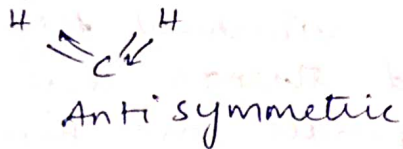 H H
C
Anti symmetric